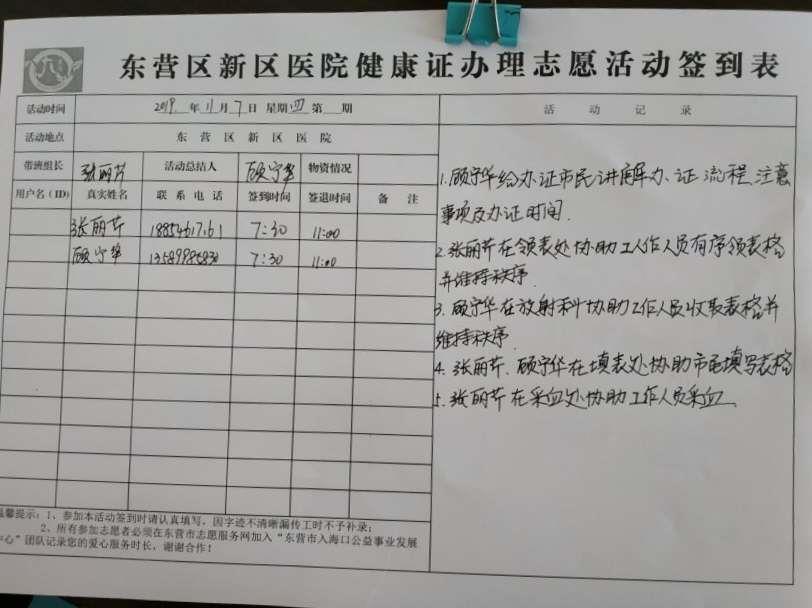 东营区新区医院健康证办理志愿活动签到表
活动时间 2019年11月7日 星期四 第 期
活动地点 东营区新区医院
带班组长 张丽芹 活动总结人 顾宁华 物资情况
用户名(ID) 真实姓名 联系电话 签到时间 签退时间 备注
张丽芹 7:30 11:00
顾宁华 13589985830 7:30 11:00
温馨提示:1、参加本活动签到时请认真填写,因字迹不清晰漏传工时不予补录;
2、所有参加志愿者必须在东营市志愿服务网加入“东营市入海口公益事业发展
中心”团队记录您的爱心服务时长,谢谢合作!
活动记录
1.顾宁华给办证市民讲解办、证流程、注意
事项及办证时间.
2.张丽芹在领表处协助工作人员有序领表格
并维持秩序.
3.顾宁华在放射科协助工作人员收取表格并
维持秩序.
4.张丽芹、顾宁华在填表处协助市民填写表格
5.张丽芹在采血处协助工作人员采血、